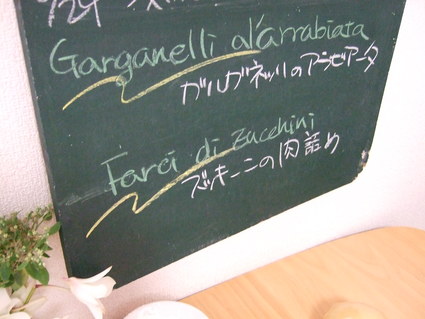 Garganelli al'arrabiata
ガルガネッリのアラビアータ
Farci di zucchini
ズッキーニの肉詰め